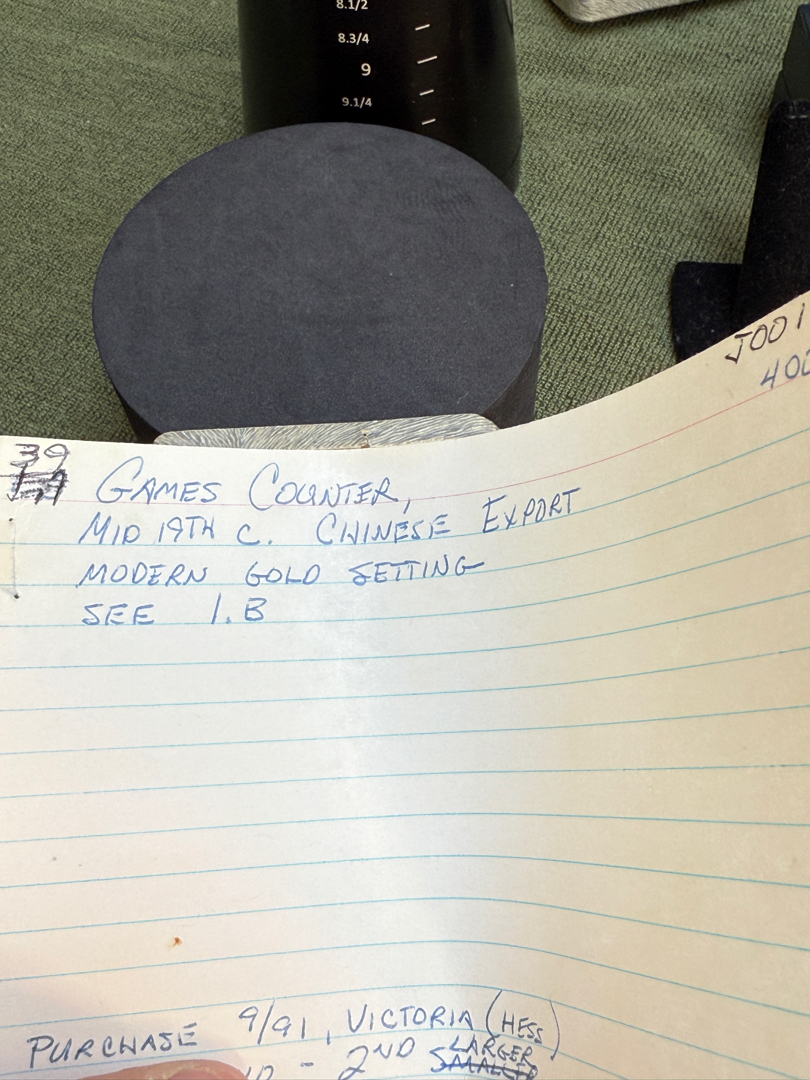 8.1/2
8.3/4
9
9.1/4
39
GAMES COUNTER,
MID 19TH C. CHINESE EXPORT
MODERN GOLD SETTING
SEE 1.B
PURCHASE 9/91, VICTORIA (HESS)
- 2ND LARGER
SMALLER